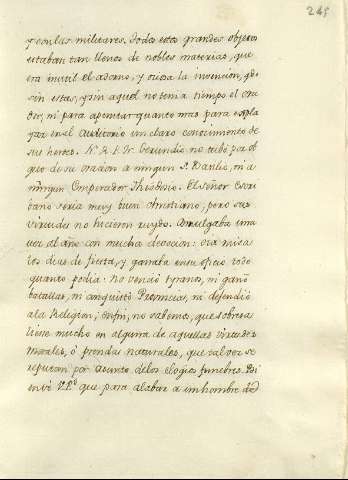 245
y con las militares. Todos estos grandes objetos
estaban tan llenos de nobles materias, que
era inutil el adorno, y ociosa la invencion, qe
sin estas, y sin aquel no tenia tiempo el ora
dor, ni para apuntar quanto mas para expla
yar en el Auditorio un claro conocimiento de
sus heroes. N. R. P. Fr. Gerundio no tubo por ob
geto de su oracion a ningun S. Basilio, ni a
ningun Emperador Theodosio. El señor Escri
bano seria muy buen Christiano; pero sus
virtudes no hicieron ruydo. Comulgaba una
vez al año con mucha devocion: oia misa
los dias de fiesta, y ganaba en su oficio todo
quanto podia: no venció tyranos, ni ganó
batallas, ni conquistó Provincias, ni defendió
a la Religion; en fin, no sabemos, que sobresa
liese mucho en alguna de aquellas virtudes
morales, ó prendas naturales, que tal vez se
reputan por asunto de los elogios funebres.
V. Pd. que para alabar a un hombre de